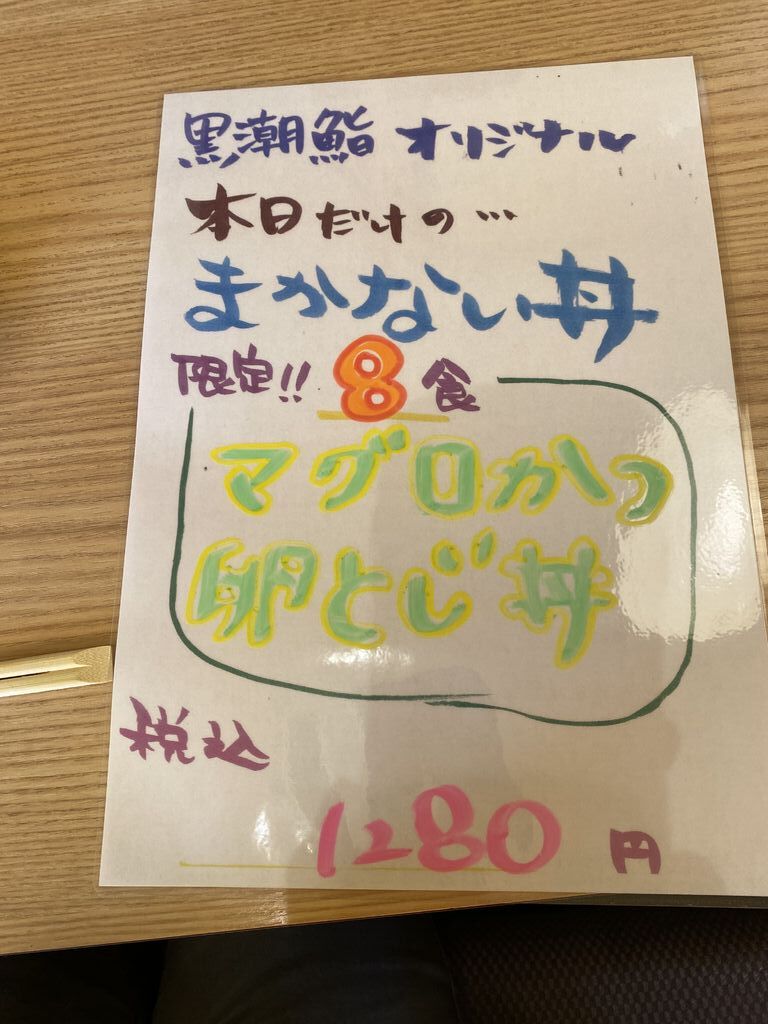 黒潮鮨 オリジナル
本日だけの…
まかない丼
限定!! 8食
マグロかつ
卵とじ丼
税込
1280円